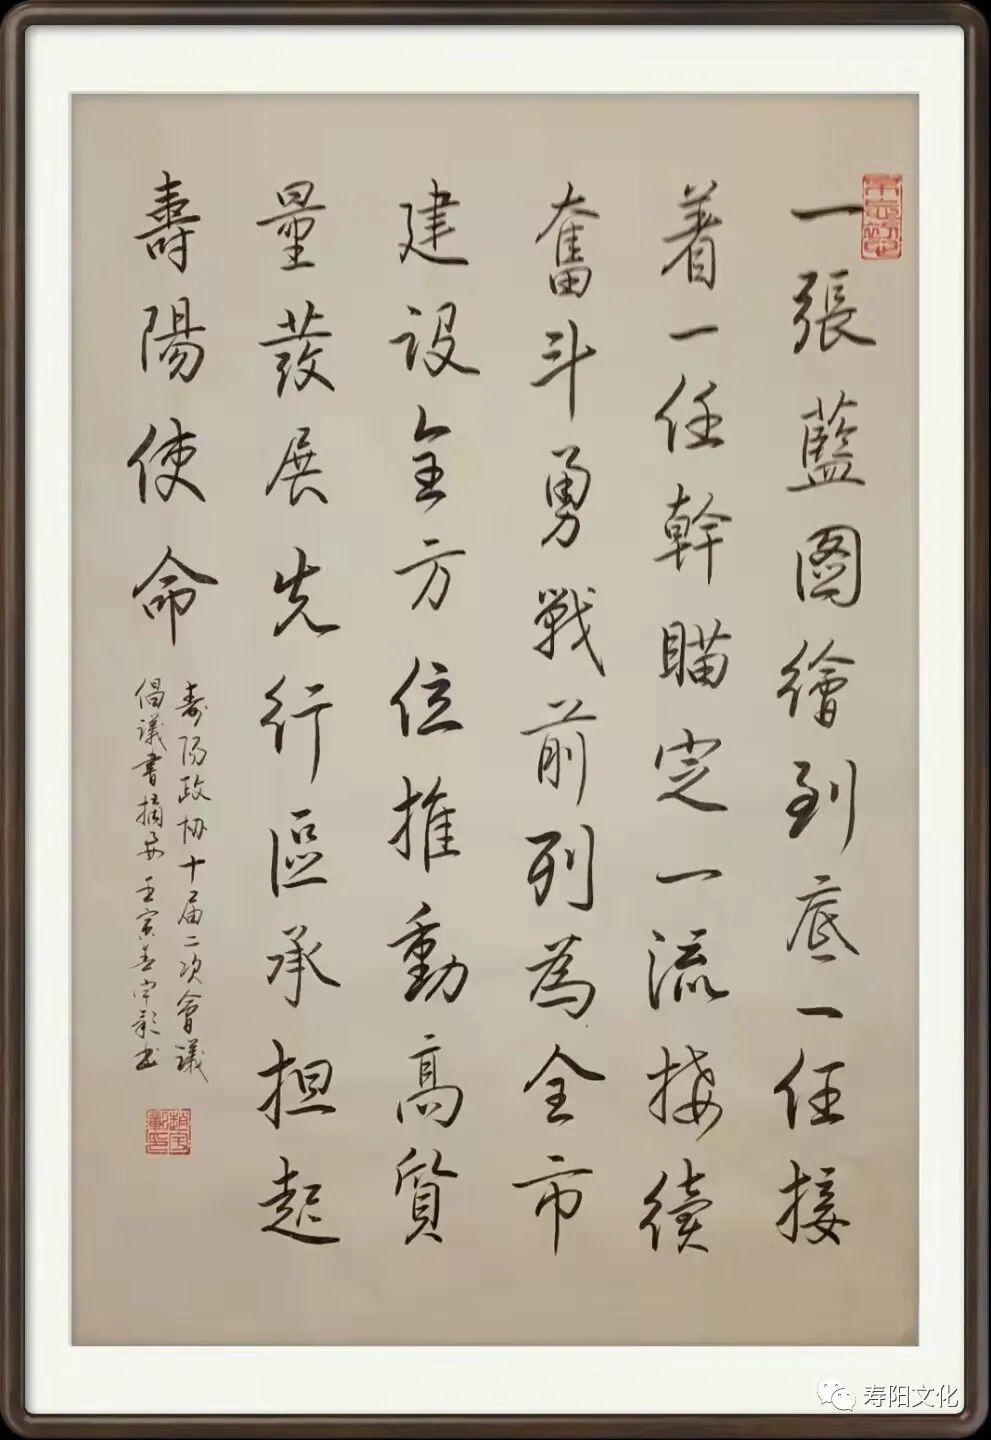 一張藍图繪到底一任接
着一任幹瞄定一流接續
奮斗勇戰前列為全市
建设全方位推動高質
量發展先行區承担起
壽陽使命
寿陽政协十届二次會議
倡议書摘女壬寅春宇彩书
寿阳文化